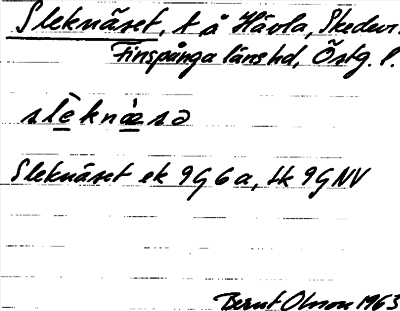 Sleknäset, t å Hävla, Skedevi
Finspånga läns hd, Östg. l.
slèknæ̀sə
Sleknäset ek 9G6a, tk 9GNV
Bernt Olsson 1963